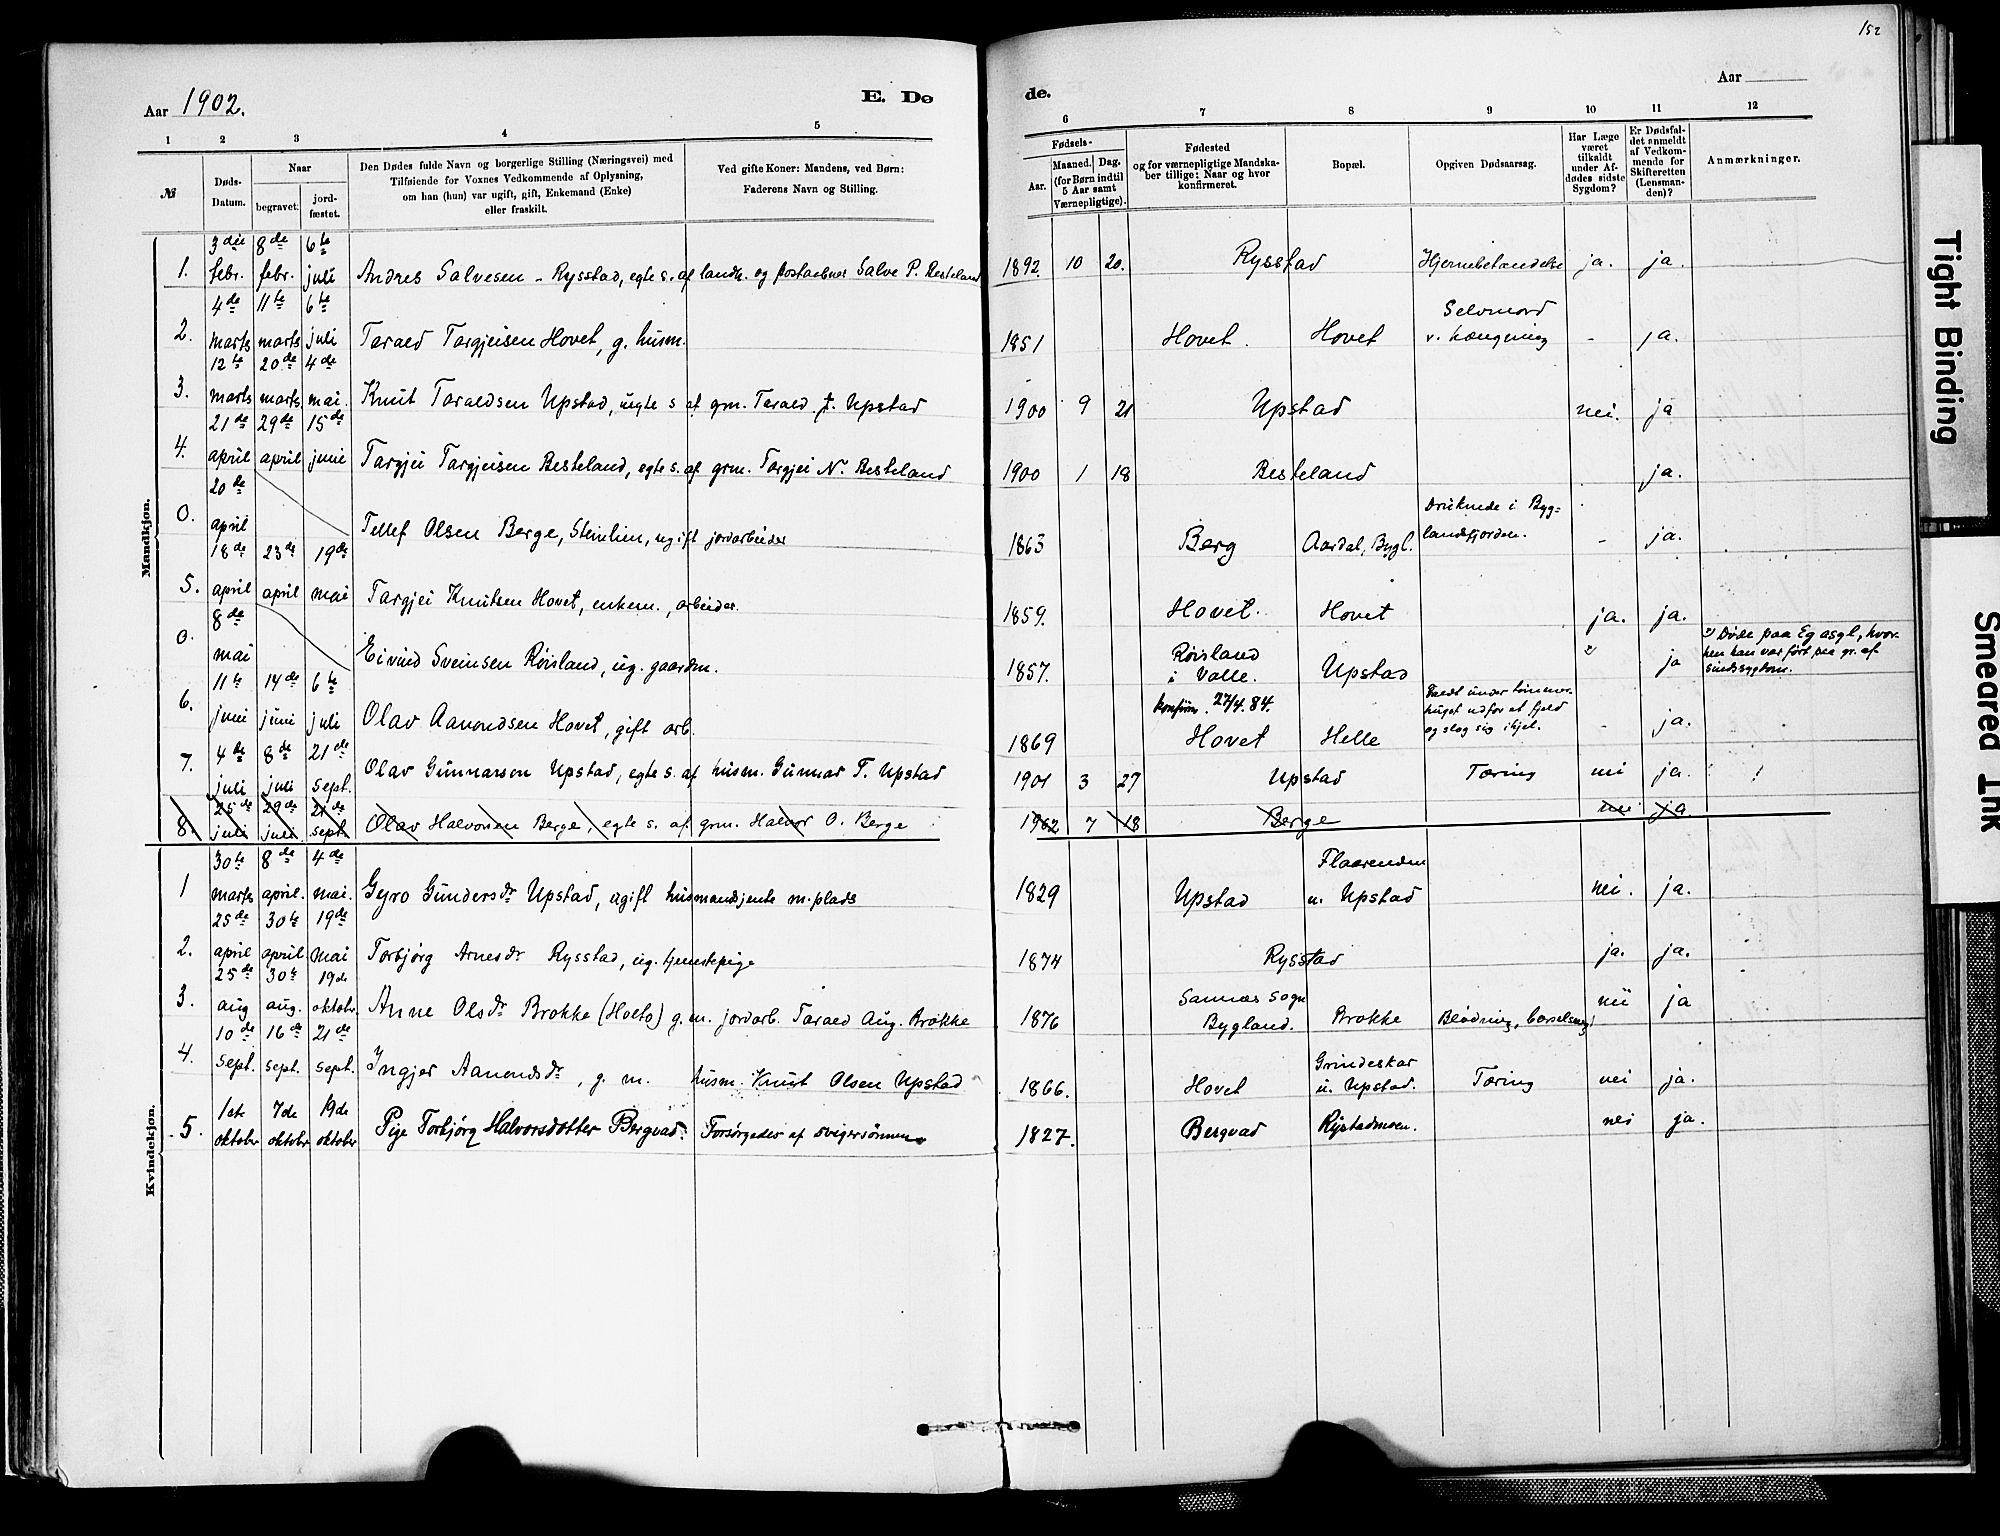 152
Aar 1902.
E. Dø
de.
Aar
1 2 3 4 5 6 7 8 9 10 11 12
№
Døds-Datum.
Naar
begravet.
jord-fæstet.
Den Dødes fulde Navn og borgerlige Stilling (Næringsvei) med
Tilføiende for Voxnes Vedkommende af Oplysning,
om han (hun) var ugift, gift, Enkemand (Enke)
eller fraskilt.
Ved gifte Koner: Mandens, ved Børn:
Faderens Navn og Stilling.
Fødsels-
Aar.
Maaned. Dag.
(for Børn indtil
5 Aar samt
Værnepligtige).
Fødested
og for værnepligtige Mandska-
ber tillige: Naar og hvor
konfirmeret.
Bopæl.
Opgiven Dødsaarsag.
Har Læge
været
tilkaldt
under Af-
dødes sidste
Sygdom?
Er Dødsfal-
det anmeldt
af Vedkom-
mende for
Skifteretten
(Lensman-
den)?
Anmærkninger.
Mandkjøn.
3die 8de 6te
1. febr. febr. juli Andres Salvesen - Rysstad, egte s. af landh. og postaabner Salve P. Besteland 1892. 10 20. Rysstad Hjernebetændelse ja. ja.
4de 11te 6te
Selvmord
2. marts marts juli Taraed Targjeisen Hovet, g. husm. 1851 Hovet. Hovet v. hængning - ja.
12te 20de 4de
3. marts marts. mai. Knut Taraldsen Upstad, uegte s af grm. Taraed T. Upstad 1900 9 21 Upstad nei. ja
21de 29de 15de
4. april april juni Targjei Targjeisen Besteland, egte s. af grm. Targjei N. Besteland 1900 1 18 Besteland ja.
20de
Druknede i Byg-
0. april Tellef Olsen Berge, ugift jordarbeider 1863 Berg Aardal, Bygl. landsfjorden. - ja.
18de 23de 19de
5. april april mai Targjei Knutsen Hovet, enkem., arbeider. 1859. Hovet. Hovet ja. ja.
8de
0. mai Eivind Sveinsen Røisland, ug. gaardm. 1857. Røisland i Valle. Upstad ja Døde paa Eg asyl, hvor-
hen han var ført paa gr. af
sindssygdom.
11te 14de 6te
konfirm. 27/4. 84.
6. juni juni juli Olav Aanondsen Hovet, gift arb. 1869 Hovet Helle under tømmer-
huget udfor et fjeld
og slog sig ihjel. - ja.
4de 8de 21de
7. juli juli sept. Olav Gunnarson Upstad, egte s. af husm. Gunnar T. Upstad 1901 3 27 Upstad Tæring nei ja. !
25de 29de 21de
8. juli juli sept. Olav Halvorsen Berge, egte s. af grm. Halvor O. Berge 1902 7 18 Berge nei ja.
Kvindekjøn.
30te 8de 4de
Flaarenden
1 marts april. mai. Gyro Gundersdr Upstad, ugift husmandsjente m. plads 1829 Upstad u. Upstad nei. ja.
25de 30te 19de
2. april april. mai Torbjørg Arnesdr Rysstad, ug. tjenestepige 1874 Rysstad ja. ja.
25de 30te 19de
Sannæs sogn
3. aug aug. oktobr Anne Olsdr Brokke (Hoeto) g. m. jordarb. Taraed Aug. Brokke 1876 Bygland. Brokke Blødning, barselseng nei ja
10de 16de 21de
Grindeskar
4. sept. sept. sept. Ingjer Aanondsdr, g. m. husm. Knut Olsen Upstad 1866. Hovet u. Upstad. Tæring nei ja.
1ste 7de 19de
5. oktobr oktobr oktobr Pige Torbjørg Halvorsdotter Bergvad. Forsørgedes af svigersønnen 1827. Bergvad Rystadmoen. nei ja.
Tight Binding
Smeared Ink